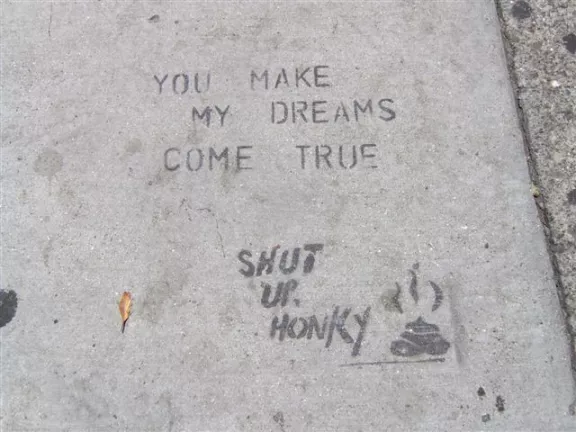 YOU MAKE
MY DREAMS
COME TRUE
SHUT
UP.
HONKY